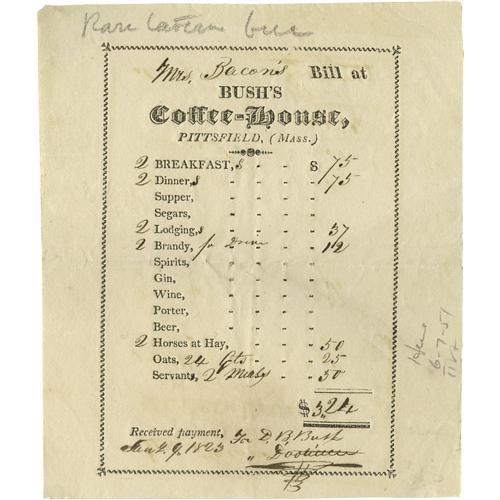 Rare Tavern bill
Mrs. Bacon's Bill at
BUSH'S
Coffee-House,
PITTSFIELD, (MASS.)
2 BREAKFAST,s - - $ 75
2 Dinner,s - - - - 75
Supper, - - - -
Segars, - - - -
2 Lodging,s - - - - 37
2 Brandy, for - - 12
Spirits, - - - -
Gin, - - - -
Wine, - - - -
Porter, - - - -
Beer, - - - -
2 Horses at Hay, - - - 50
Oats, 24 qts - - 25
Servants, 2 Meals - - 50
$3,24
Received payment, For D. B. Bush
9, 1823
6-7-51